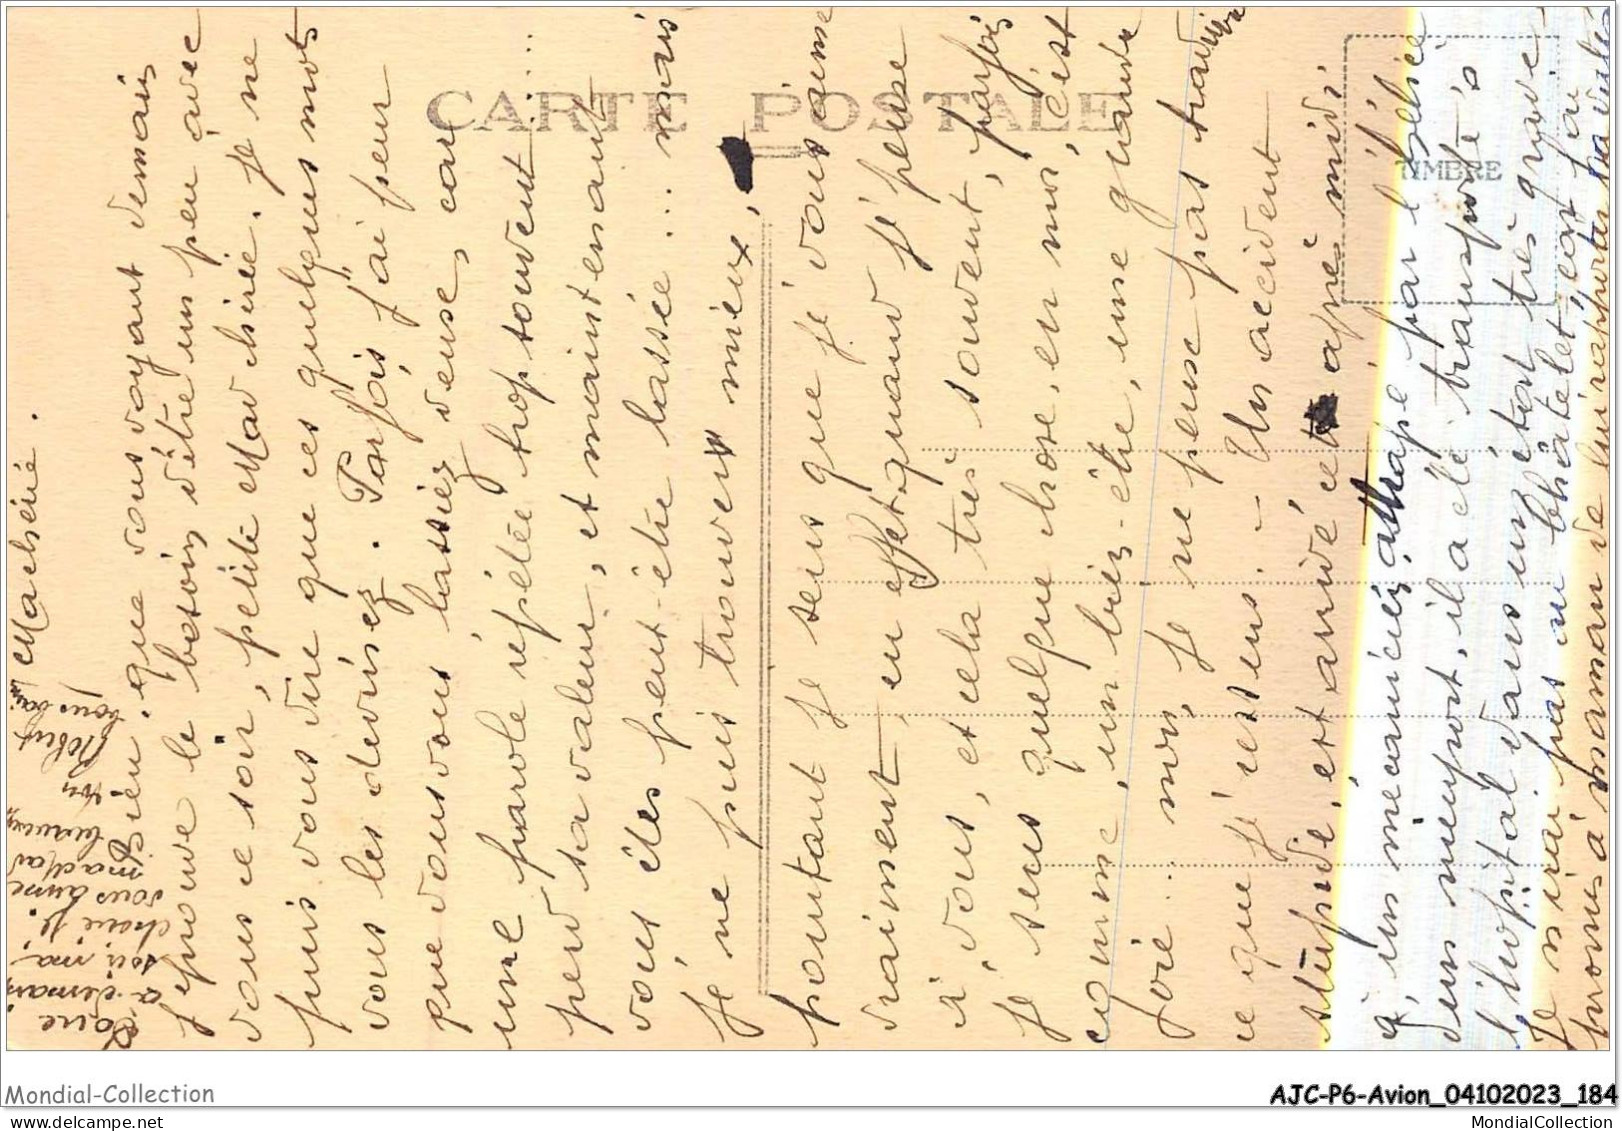 Ma chérie.
Bien que vous voyant demain
j'éprouve le besoin d'être un peu avec
vous ce soir, petite Mad chérie. Je ne
puis vous dire que ces quelques mots
vous les devinez. Parfois j'ai peur
que vous vous lassiez deuse, car
une parole répétée trop souvent.....
perd sa valeur, et maintenant
vous êtes peut-être lassée... mais
je ne puis trouver mieux,
pourtant je sens que je vous aime
vraiment, en effet quand je pense
à vous, et cela très souvent, parfois
je sens quelque chose, en moi, c'est
comme, un bien-être, une grande
joie... non, je ne pense pas traduire
ce que je ressens. - Un accident
stupide, est arrivé cet aprè midi
à un mécanicien, attrapé par l'hélice
d'un nieuport, il a été transporté à
l'hopital dans un état très grave
Je n'irai pas au Châtelet, car j'ai
promis à maman de lui rapporter
Robert
vous aime
ma Mad
chérie je
soir ma
a demain
CARTE POSTALE
TIMBRE
Mondial-Collection
AJC-P6-Avion_04102023_184
MondialCollection